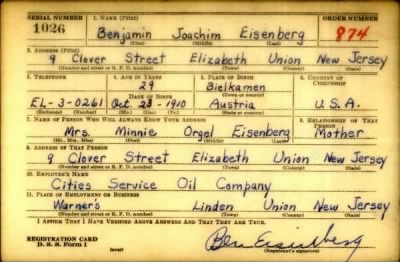 SERIAL NUMBER 1. NAME (Print) ORDER NUMBER
1026 Benjamin Joachim Eisenberg 874
(First) (Middle) (Last)
2. ADDRESS (Print)
9 Clover Street Elizabeth Union New Jersey
(Number and street or R. F. D. number) (Town) (County) (State)
3. TELEPHONE 4. AGE IN YEARS 5. PLACE OF BIRTH 6. COUNTRY OF CITIZENSHIP
29 Bielkamen
DATE OF BIRTH
EL-3-0261 Oct. 23-1910 Austria U.S.A.
(Exchange) (Number) (Mo.) (Day) (Yr.) (State or country)
7. NAME OF PERSON WHO WILL ALWAYS KNOW YOUR ADDRESS 8. RELATIONSHIP OF THAT PERSON
Mrs. Minnie Orgel Eisenberg Mother
(Mr., Mrs., Miss) (First) (Middle) (Last)
9. ADDRESS OF THAT PERSON
9 Clover Street Elizabeth Union New Jersey
(Number and street or R. F. D. number) (Town) (County) (State)
10. EMPLOYER'S NAME
Cities Service Oil Company
11. PLACE OF EMPLOYMENT OR BUSINESS
Warner's Linden Union New Jersey
(Number and street or R. F. D. number) (Town) (County) (State)
I AFFIRM THAT I HAVE VERIFIED ABOVE ANSWERS AND THAT THEY ARE TRUE.
REGISTRATION CARD
D. S. S. Form 1 (over) Ben Eisenberg
(Registrant's signature)